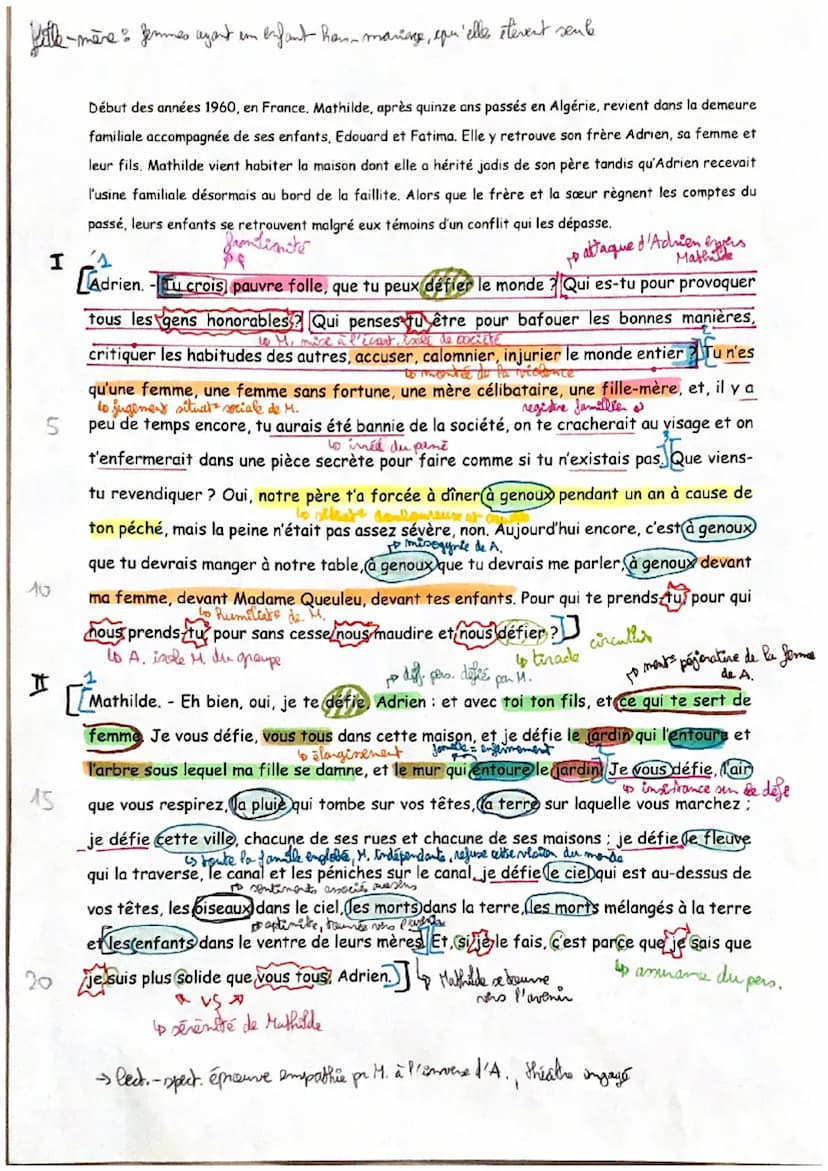 fille-mère : femmes ayant un enfant hors-mariage, qu'elles élèvent seule
Début des années 1960, en France. Mathilde, après quinze ans passés en Algérie, revient dans la demeure
familiale accompagnée de ses enfants, Edouard et Fatima. Elle y retrouve son frère Adrien, sa femme et
leur fils. Mathilde vient habiter la maison dont elle a hérité jadis de son père tandis qu'Adrien recevait
l'usine familiale désormais au bord de la faillite. Alors que le frère et la sœur règnent les comptes du
passé, leurs enfants se retrouvent malgré eux témoins d'un conflit qui les dépasse.
frontalité
attaque d'Adrien envers
Mathilde
I 1
Adrien. - Tu crois, pauvre folle, que tu peux défier le monde ? Qui es-tu pour provoquer
tous les gens honorables ? Qui penses-tu être pour bafouer les bonnes manières,
M. mise à l'écart, isolé de société
2
critiquer les habitudes des autres, accuser, calomnier, injurier le monde entier ? Tu n'es
montée de la violence
qu'une femme, une femme sans fortune, une mère célibataire, une fille-mère, et, il y a
jugement situat° sociale de M.
registre familier
5 peu de temps encore, tu aurais été bannie de la société, on te cracherait au visage et on
irréel du passé
3
t'enfermerait dans une pièce secrète pour faire comme si tu n'existais pas. Que viens-
tu revendiquer ? Oui, notre père t'a forcée à dîner à genoux pendant un an à cause de
ton péché, mais la peine n'était pas assez sévère, non. Aujourd'hui encore, c'est à genoux
misogynie de A.
que tu devrais manger à notre table, à genoux que tu devrais me parler, à genoux devant
10 ma femme, devant Madame Queuleu, devant tes enfants. Pour qui te prends-tu, pour qui
humiliat° de M.
nous prends-tu, pour sans cesse nous maudire et nous défier ?
A. isole M. du groupe
tirade
circulaire
déf. pers. défiés par M.
ment° péjorative de la femme
de A.
II 1
Mathilde. - Eh bien, oui, je te défie, Adrien : et avec toi ton fils, et ce qui te sert de
femme. Je vous défie, vous tous dans cette maison, et je défie le jardin qui l'entoure et
élargissement
famille = enfermement
2
l'arbre sous lequel ma fille se damne, et le mur qui entoure le jardin. Je vous défie, l'air
insistance sur le défi
15 que vous respirez, la pluie qui tombe sur vos têtes, la terre sur laquelle vous marchez ;
je défie cette ville, chacune de ses rues et chacune de ses maisons ; je défie le fleuve
toute la famille englobée, M. indépendante, refuse cette vision du monde
qui la traverse, le canal et les péniches sur le canal, je défie le ciel qui est au-dessus de
sentiments associés
vos têtes, les oiseaux dans le ciel, les morts dans la terre, les morts mélangés à la terre
optimiste, tournée vers l'avenir
et les enfants dans le ventre de leurs mères. Et, si je le fais, c'est parce que je sais que
20 je suis plus solide que vous tous, Adrien.
Mathilde se tourne
vers l'avenir
assurance du pers.
VS
sérénité de Mathilde
→ lect.-spect. éprouve empathie pr M. à l'inverse d'A., théâtre engagé